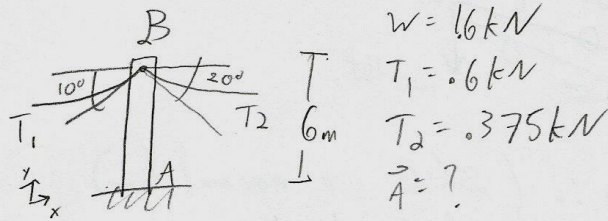 B
10°
20°
T₁
T₂
T
6m
⊥
A
y
x
W = 1.6 kN
T₁ = .6 kN
T₂ = .375 kN
A⃗ = ?